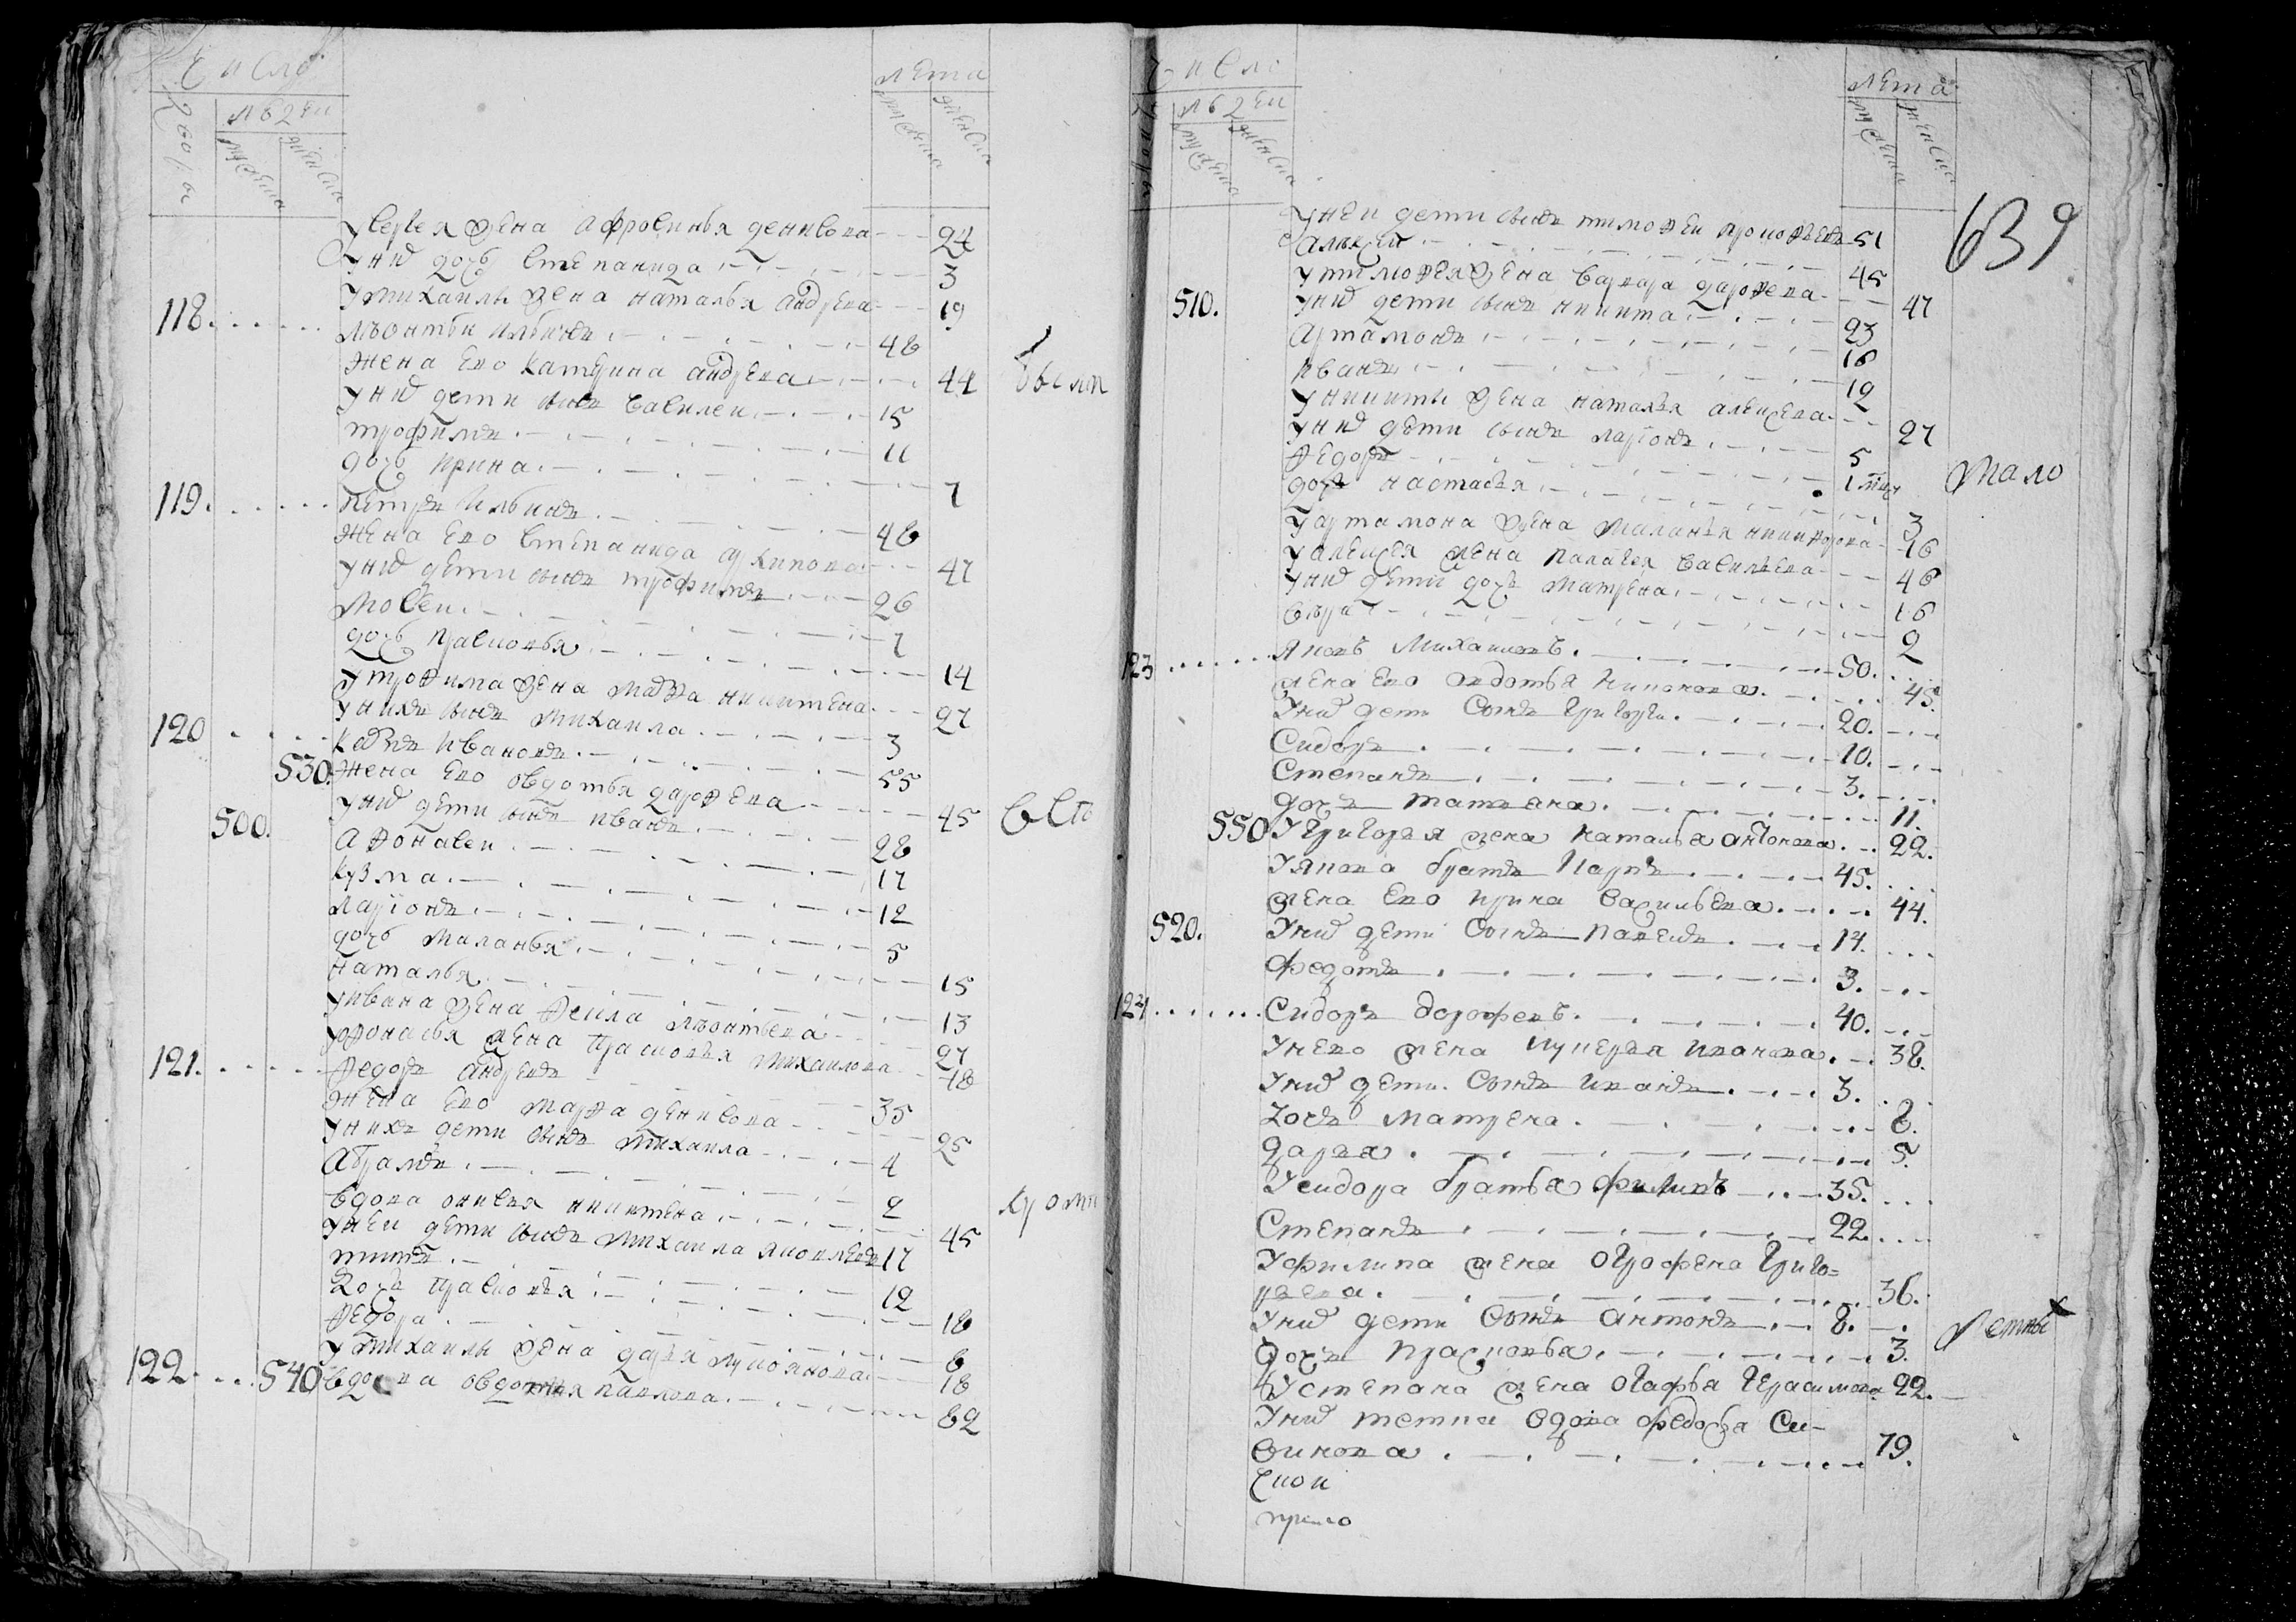 Число
дворовъ
людеи
мужеска
женска
лета
мужеска
женска
У Сергея жена Афросинья Денисова 24
У них дочь Степанида 3
У Михаилы жена Наталья Андреева 19
118. Леонтеи Ильинъ 48
Жена ево Катерина Андреева 44
У них дети сынъ Василеи 15
Трофимъ 11
дочь Ирина 7
119. Петръ Ильинъ 48
Жена ево Степанида Архипова 47
У них дети сынъ Трофимъ 26
Мосеи 7
дочь Прасковья 14
У Трофима жена Марфа Никитена 27
У нихъ сынъ Михаила 3
120 Карпъ Ивановъ 55
530. Жена ево Овдотья Дарофеева 45
500. У них дети сынъ Иванъ 28
Афонасеи 17
Кузма 12
Ларионъ 5
дочь Маланья 15
Наталья 13
У Ивана жена Фекла Леонтьева 27
У Афонасья жена Прасковья Михаилова 18
121. Федоръ Андреевъ 35
Жена ево Марфа Денисова 25
У нихъ дети сынъ Михаила 4
Абрамъ 2
Вдова Онисья Никитена 45
У неи дети сынъ Михаила Яковлевъ 17
Титъ 12
Дочь Прасковья 18
Федора 8
У Михаилы жена Дарья Лукоянова 18
122. 540 Вдова Овдотья Павлова 82
Всего
Число
людеи
мужеска
женска
лета
мужеска
женска
639
У неи дети сынъ Тимофеи Прокофьевъ 51
Алексеи 45
У Тимофея жена Варвара Дарофеева 47
510. У них дети сынъ Никита 23
Артамонъ 16
Иванъ 12
У Никиты жена Наталья Алексеева 27
У них дети сынъ Ларионъ 5
Федоръ 1
дочь Настасья 3
У Артамона жена Маланья Никифорова 16
У Алексея жена Палагея Васильева 46
У них дети дочь Матрена 16
Вера 2
123 Яковъ Михаиловъ. 50.
жена ево Овдотья 45.
У них дети Сынъ Григореи. 20.
Сидоръ 10.
Степанъ 3.
дочь Татьяна. 11.
550 У Григорья жена Наталья Антонова. 22.
У Якова братъ Карпъ 45.
жена ево Ирина Васильева. 44.
520. У них дети Сынъ 14.
Федотъ 3.
124 Сидоръ Дорофеевъ. 40.
У нево жена Лукерья Иванова. 38.
У них дети. Сынъ Иванъ 3.
Дочь Матрена. 8.
Дарья. 5.
У Сидора братья Филипъ 35.
Степанъ 22.
У Филипа жена Огрофена Григо=
рьева. 36.
У них дети Сынъ Антонъ 8.
дочь Прасковья. 3.
У Степана жена Огафья Герасимова 22.
У них тетка вдова Федосья Са-
винова. 79.